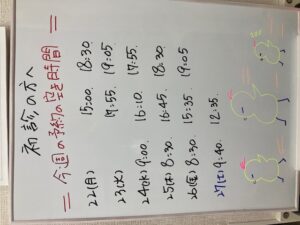 初診の方へ
＝今週の予約の空き時間＝
22(月) 15:00. 18:30.
23(火) 17:55. 19:05.
24(水) 9:00. 16:10. 17:55.
25(木) 8:30. 16:45. 18:30.
26(金) 8:30. 15:35. 19:05
27(土) 9:40. 12:35.